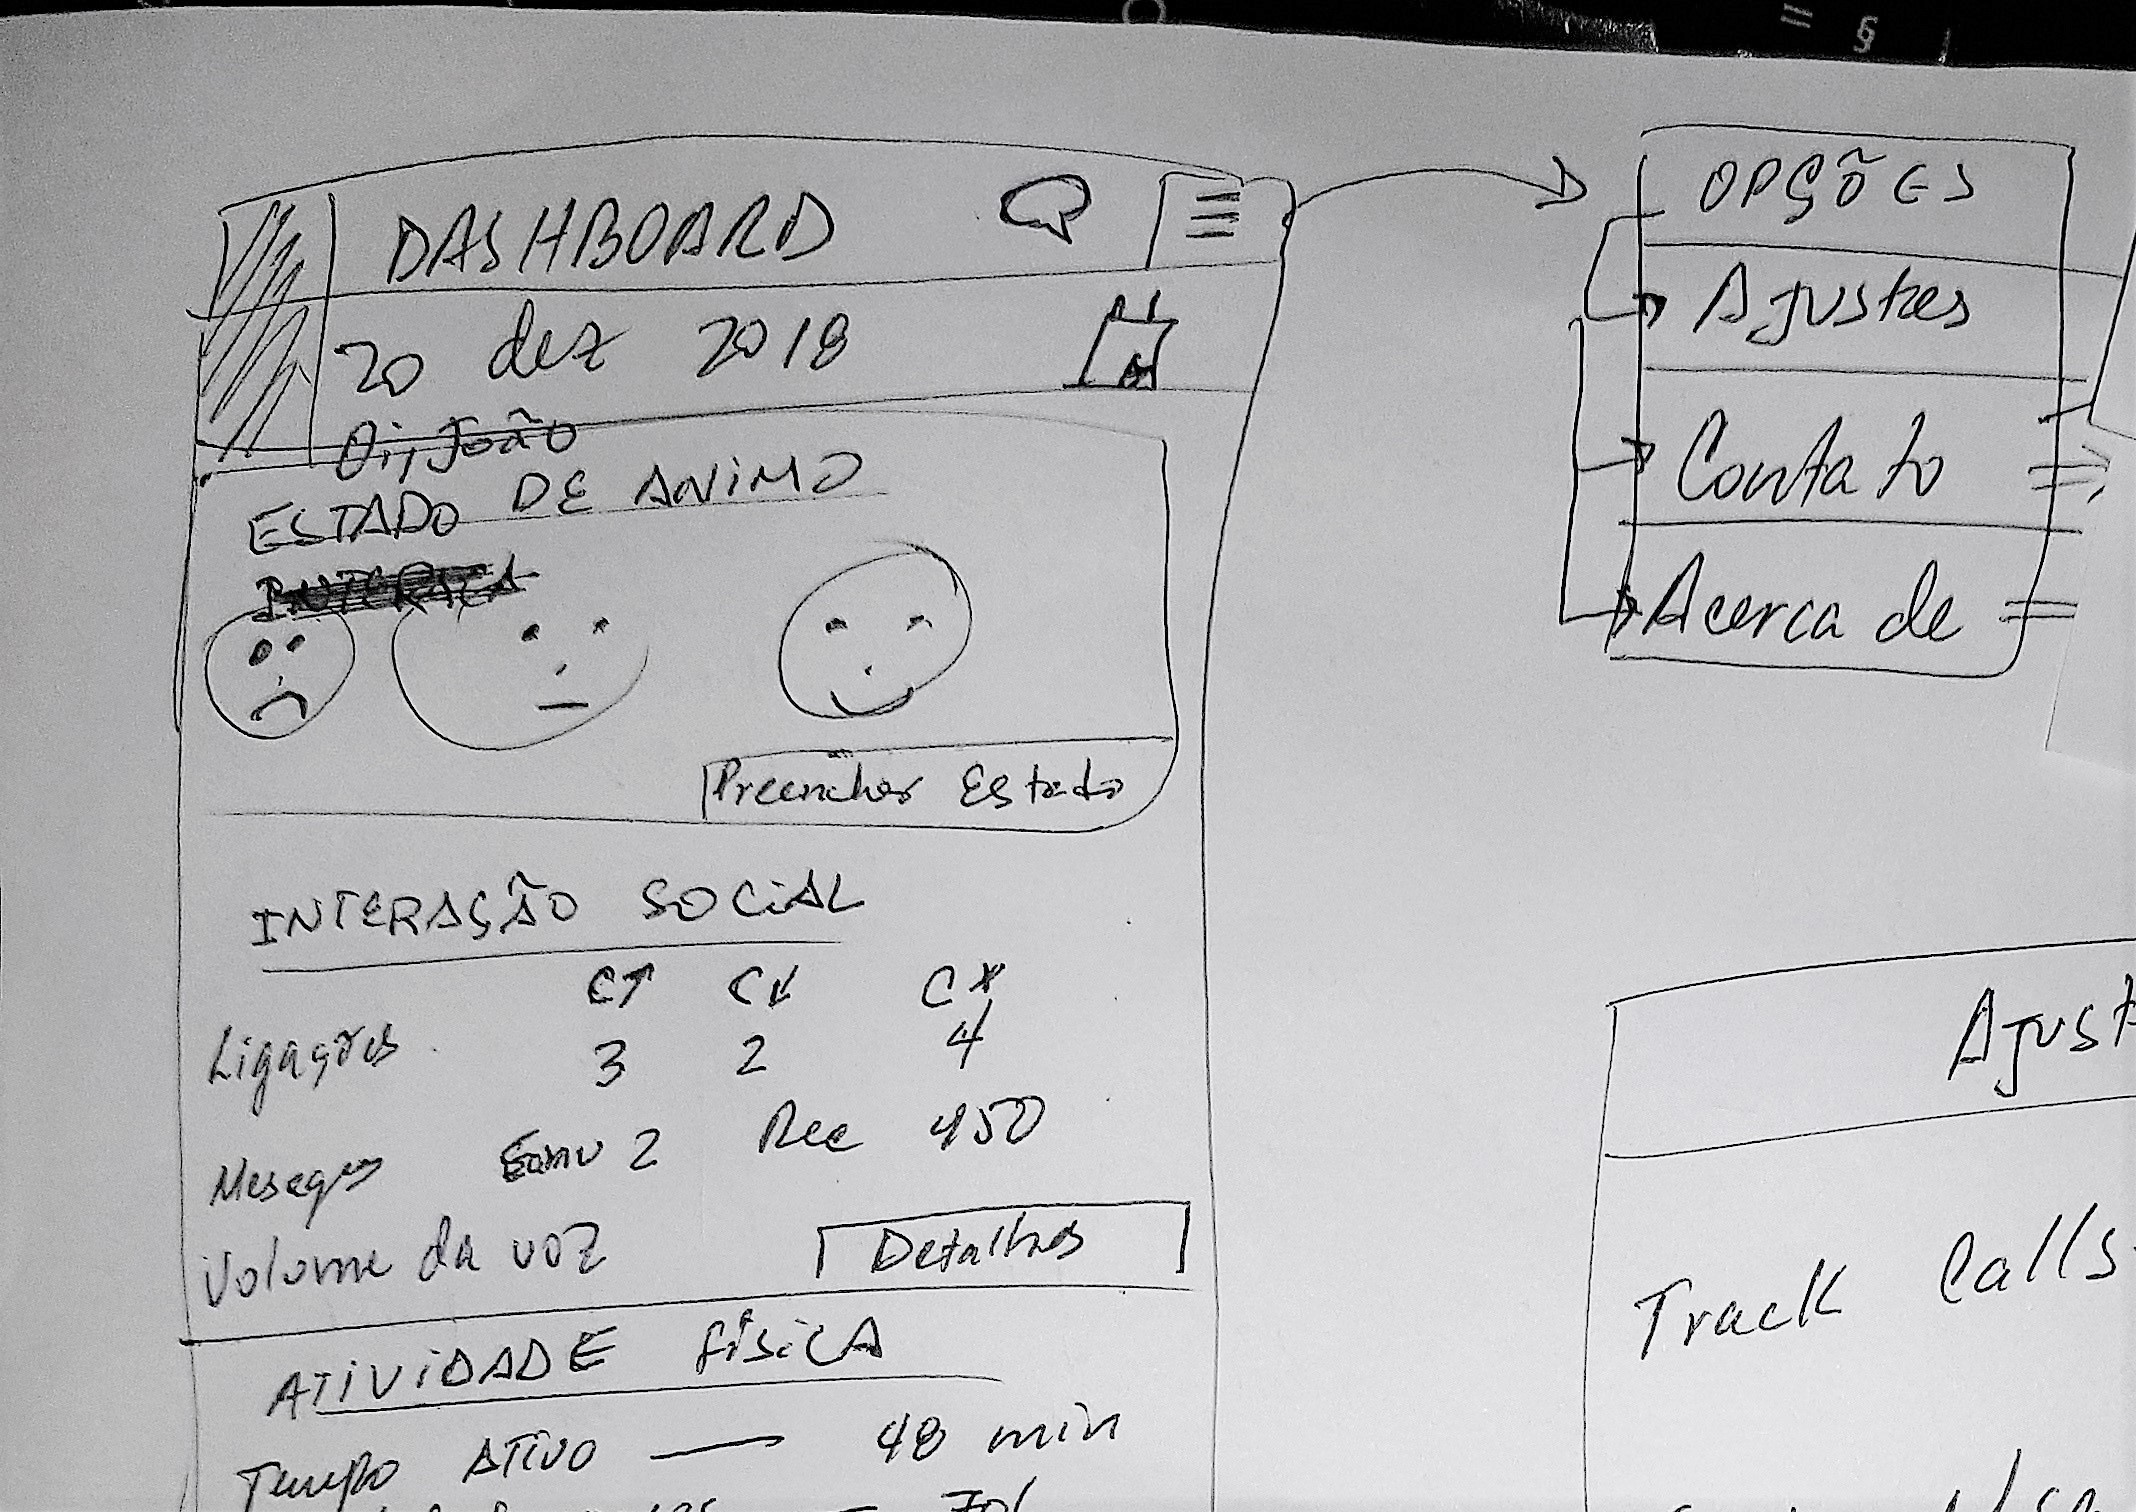 DASHBOARD
20 dez 2018
Oi, João
ESTADO DE ANIMO
Preencher Estado
INTERAÇÃO SOCIAL
C↑ C↙ C*
Ligações 3 2 4
2 Rec 450
Volume da voz Detalhes
ATIVIDADE física
Tempo ATIVO — 48 min
OPÇÕES
Ajustes
Contato
Acerca de
Ajust
Track Calls